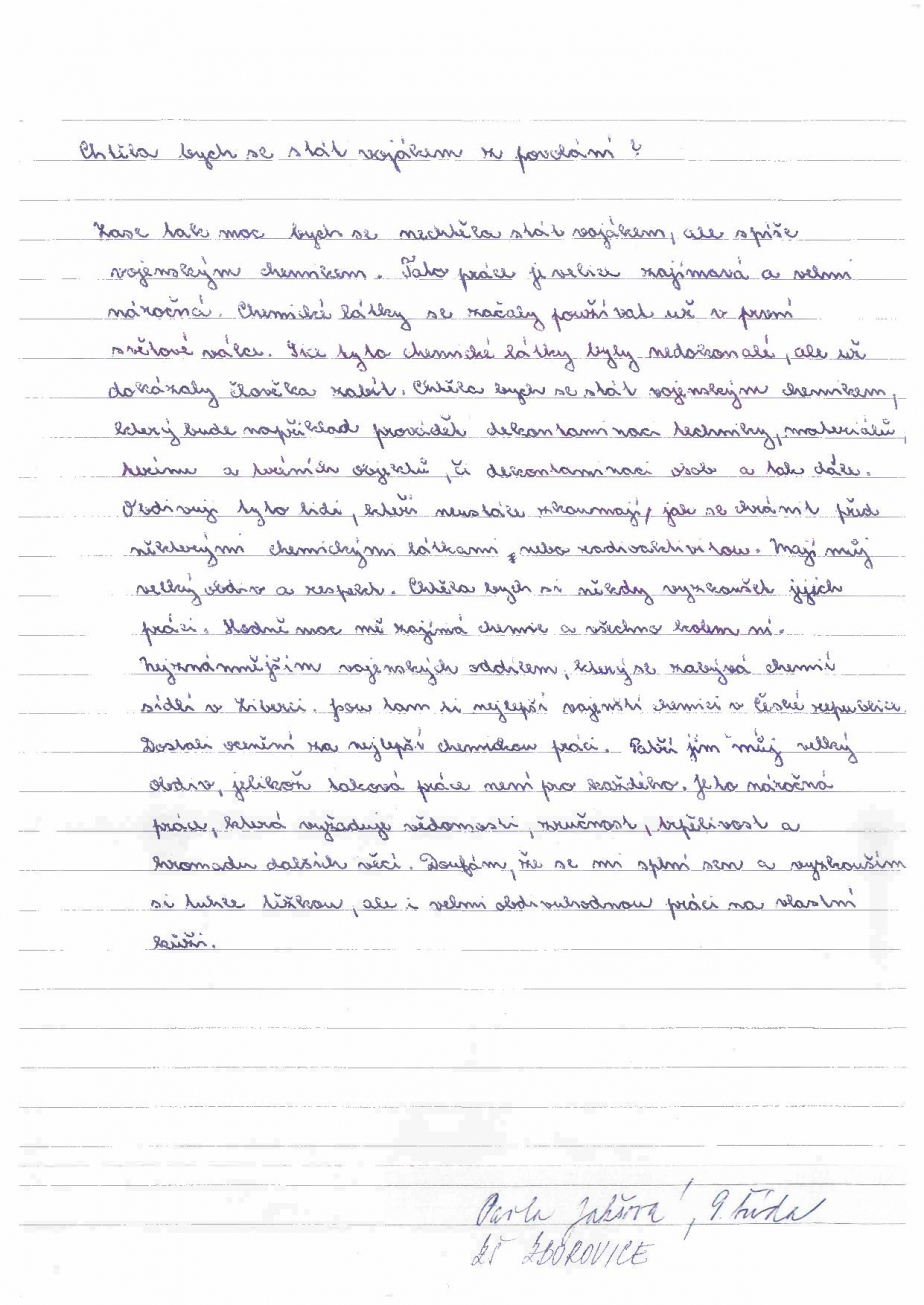 Chtěla bych se stát vojákem z povolání?
Zase tak moc bych se nechtěla stát vojákem, ale spíše
vojenským chemikem. Tato práce je velice zajímavá a velmi
náročná. Chemické látky se začaly používat už v první
světové válce. Sice tyto chemické látky byly nedokonalé, ale už
dokázaly člověka zabít. Chtěla bych se stát vojenským chemikem,
který bude například provádět dekontaminaci techniky, materiálů,
terénu a terénních objektů, či dekontaminaci osob a tak dále.
Obdivuji tyto lidi, kteří neustále zkoumají, jak se chránit před
některými chemickými látkami, nebo radioaktivitou. Mají můj
velký obdiv a respekt. Chtěla bych si někdy vyzkoušet jejich
práci. Hodně moc mě zajímá chemie a všechno kolem ní.
Nejznámnějším vojenských oddílem, který se zabývá chemií
sídlí v Liberci. Jsou tam ti nejlepší vojenští chemici v České republice.
Dostali ocenění za nejlepší chemickou práci. Patří jim můj velký
obdiv, jelikož taková práce není pro každého. Je to náročná
práce, která vyžaduje vědomosti, zručnost, trpělivost a
hromadu dalších věcí. Doufám, že se mi splní sen a vyzkouším
si tuhle těžkou, ale i velmi obdivuhodnou práci na vlastní
kůži.
Pavla, 9. třída
ZŠ ZBOROVICE